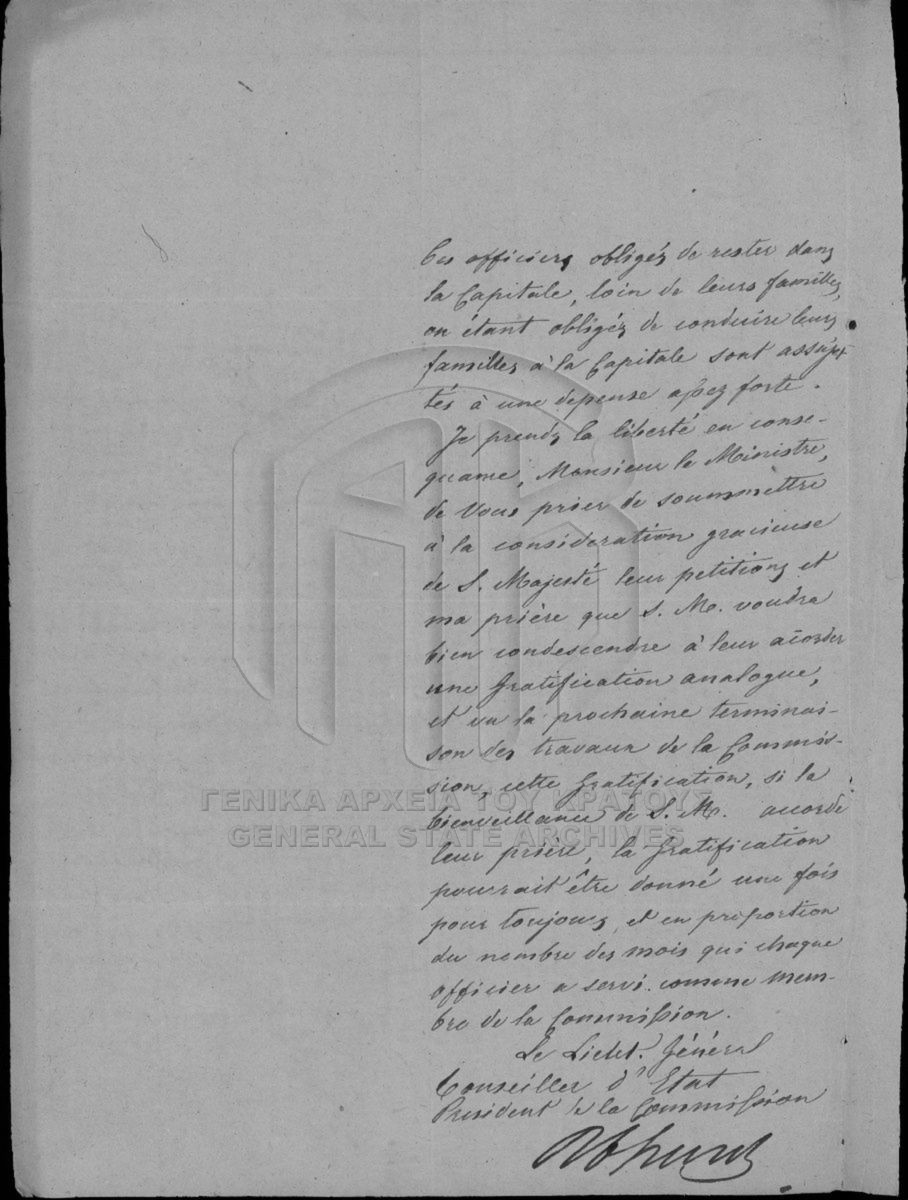 Ces officiers obligés de rester dans
la Capitale, loin de leurs familles,
ou étant obligés de conduire leurs
familles à la Capitale sont assujet
tés à une depense assez forte.
Je prends la liberté en conse-
quame, Monsieur le Ministre,
de Vous prier de soummettre
à la consideration gracieuse
de S. Majesté leur petitions et
ma prière que S. M. voudra
bien condescendre à leur acorder
une Gratification analogue,
et vu la prochaine terminai-
son des travaux de la Commis-
sion, cette Gratification, si la
bienveillance de S. M. accorde
leur prière, la Gratification
pourrait être donné une fois
pour toujours, et en proportion
du nombre des mois qui chaque
officier a servi comme mem-
bre de la Commission.
Le Lieut. Général
Conseiller d'Etat
President de la Commission
ΓΕΝΙΚΑ ΑΡΧΕΙΑ ΤΟΥ ΚΡΑΤΟΥΣ
GENERAL STATE ARCHIVES